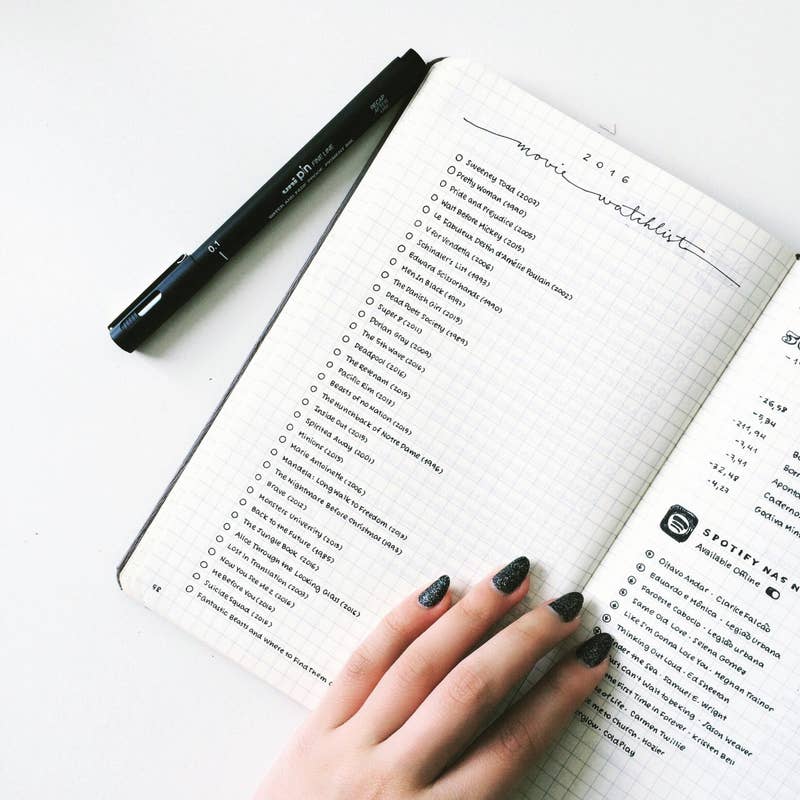 uni pin FINE LINE
WATER AND FADE PROOF PIGMENT INK
0.1
2016
movie watchlist
Sweeney Todd (2007)
Pretty Woman (1990)
Pride and Prejudice (2005)
Wait Before Mickey (2015)
Le Fabuleux Destin d'Amélie Poulain (2002)
V for Vendetta (2006)
Schindler's List (1993)
Edward Scissorhands (1990)
Men In Black (1997)
The Danish Girl (2015)
Dead Poets Society (1989)
Super 8 (2011)
Dorian Gray (2009)
The 5th Wave (2016)
Deadpool (2016)
The Revenant (2015)
Pacific Rim (2013)
Beasts of no Nation (2015)
The Hunchback of Notre Dame (1996)
Inside Out (2015)
Spirited Away (2001)
Minions (2015)
Marie Antoinette (2006)
Mandela: Long Walk to Freedom (2013)
The Nightmare Before Christmas (1993)
Brave (2012)
Monsters University (2013)
Back to the Future (1985)
The Jungle Book (2016)
Alice Through the Looking Glass (2016)
Lost in Translation (2003)
Now You See Me 2 (2016)
Me Before You (2016)
Suicide Squad (2016)
Fantastic Beasts and Where to Find Them
58
-26,58
-5,34
-211,94
-7,41
-7,41
-32,48
-4,27
Caderno
Godiva
SPOTIFY NAS
Available Offline
Oitavo Andar - Clarice Falcão
Eduardo e Mônica - Legião Urbana
Faroeste Caboclo - Legião Urbana
Same Old Love - Selena Gomez
Like I'm Gonna Lose You - Meghan Trainor
Thinking Out Loud - Ed Sheeran
the Sea - Samuel E. Wright
Can't Wait to be King - Jason Weaver
the First Time in Forever - Kristen Bell
of Life - Carmen Twillie
me to Church - Hozier
Coldplay